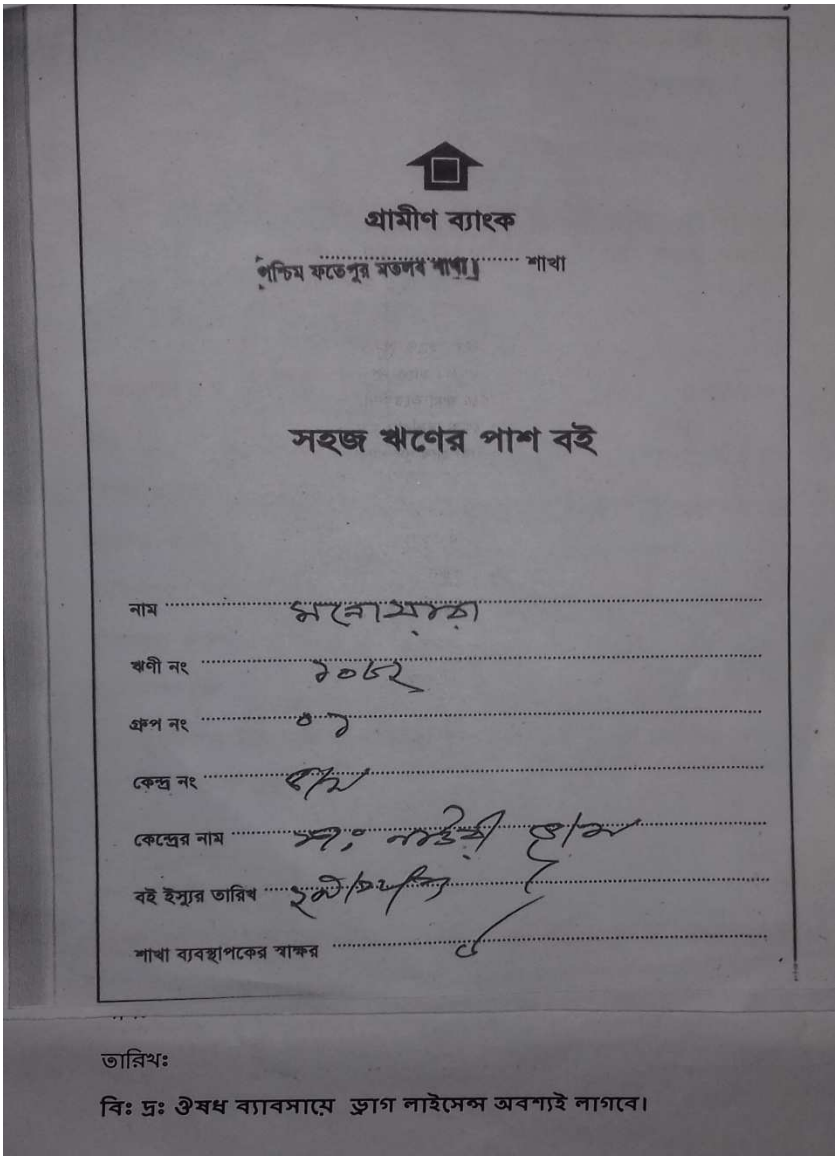 গ্রামীণ ব্যাংক
পশ্চিম ফতেপুর মতলব শাখা। শাখা
সহজ ঋণের পাশ বই
নাম মনোয়ারা
ঋণী নং ১০৮২
গ্রুপ নং ০১
কেন্দ্র নং
কেন্দ্রের নাম
বই ইস্যুর তারিখ
শাখা ব্যবস্থাপকের স্বাক্ষর
তারিখঃ
বিঃ দ্রঃ ঔষধ ব্যাবসায়ে ড্রাগ লাইসেন্স অবশ্যই লাগবে।